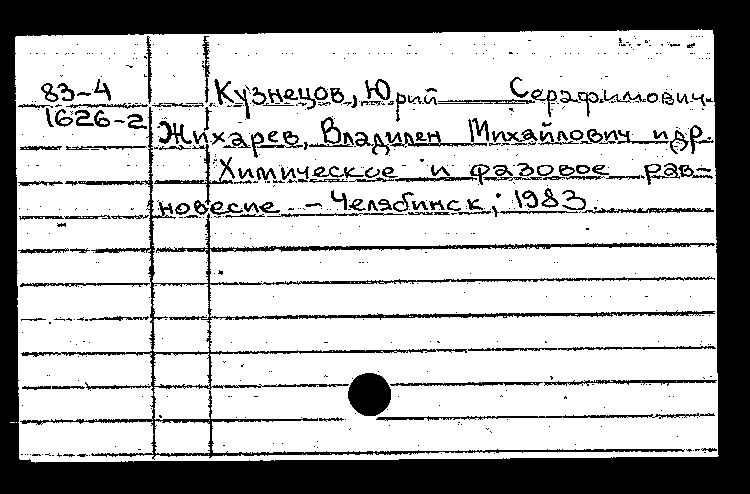 83-4
1626-2
Кузнецов, Юрий Серафимович.
Жихарев, Владилен Михайлович и др.
Химическое и фазовое рав-
новесие - Челябинск, 1983.